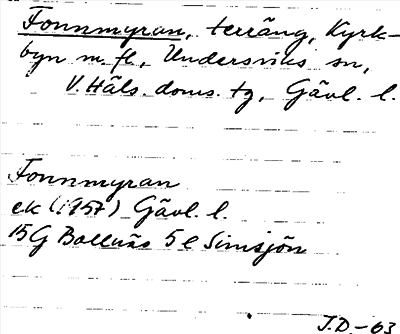 Fonnmyran, terräng, Kyrk-
byn m. fl., Undersviks sn,
V. Häls. doms. tg, Gävl. l.
Fonnmyran
ek (1957) Gävl. l.
15G Bollnäs 5 e Simsjön
J.D.-63